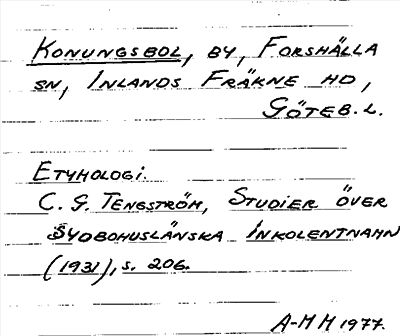 KONUNGSBOL, BY, FORSHÄLLA
SN, INLANDS FRÄKNE HD,
GÖTEB. L.
ETYMOLOGI.
C. G. TENGSTRÖM, STUDIER ÖVER
SYDBOHUSLÄNSKA INKOLENTNAMN
(1931), S. 206.
A-M H 1977.